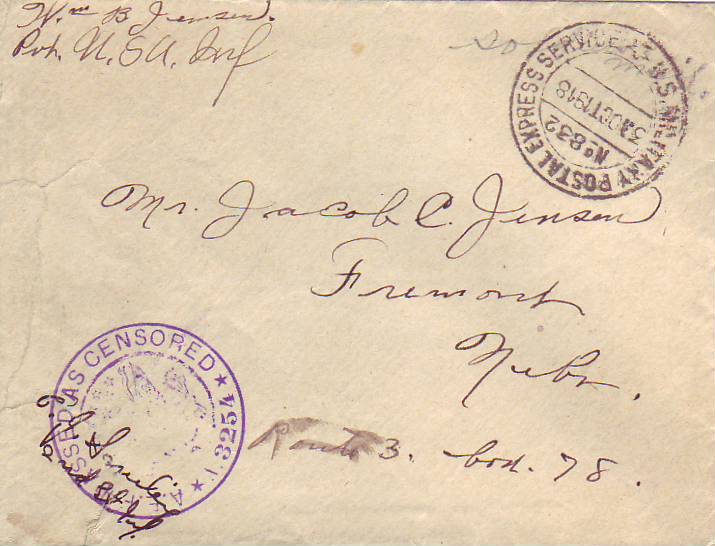 Wm B Jensen.
Pvt. U.S.A. Inf
U.S. MILITARY POSTAL EXPRESS SERVICE
OCT 1918
No 832
Mr. Jacob C. Jensen
Fremont
Nebr.
Route 3. box. 78.
PASSED AS CENSORED ★ 3254 ★ A